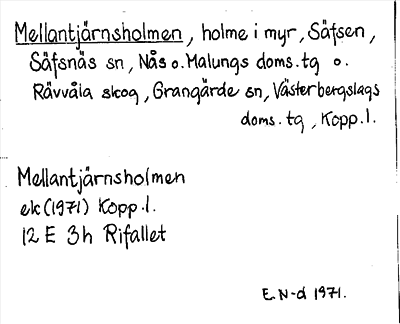 Mellantjärnsholmen, holme i myr, Säfsen,
Säfsnäs sn, Nås o. Malungs doms.tg o.
Rävvåla skog, Grangärde sn, Västerbergslags
doms.tg, Kopp.l.
Mellantjärnsholmen
ek (1971) Kopp.l.
12 E 3h Rifallet
E.N-d 1971.